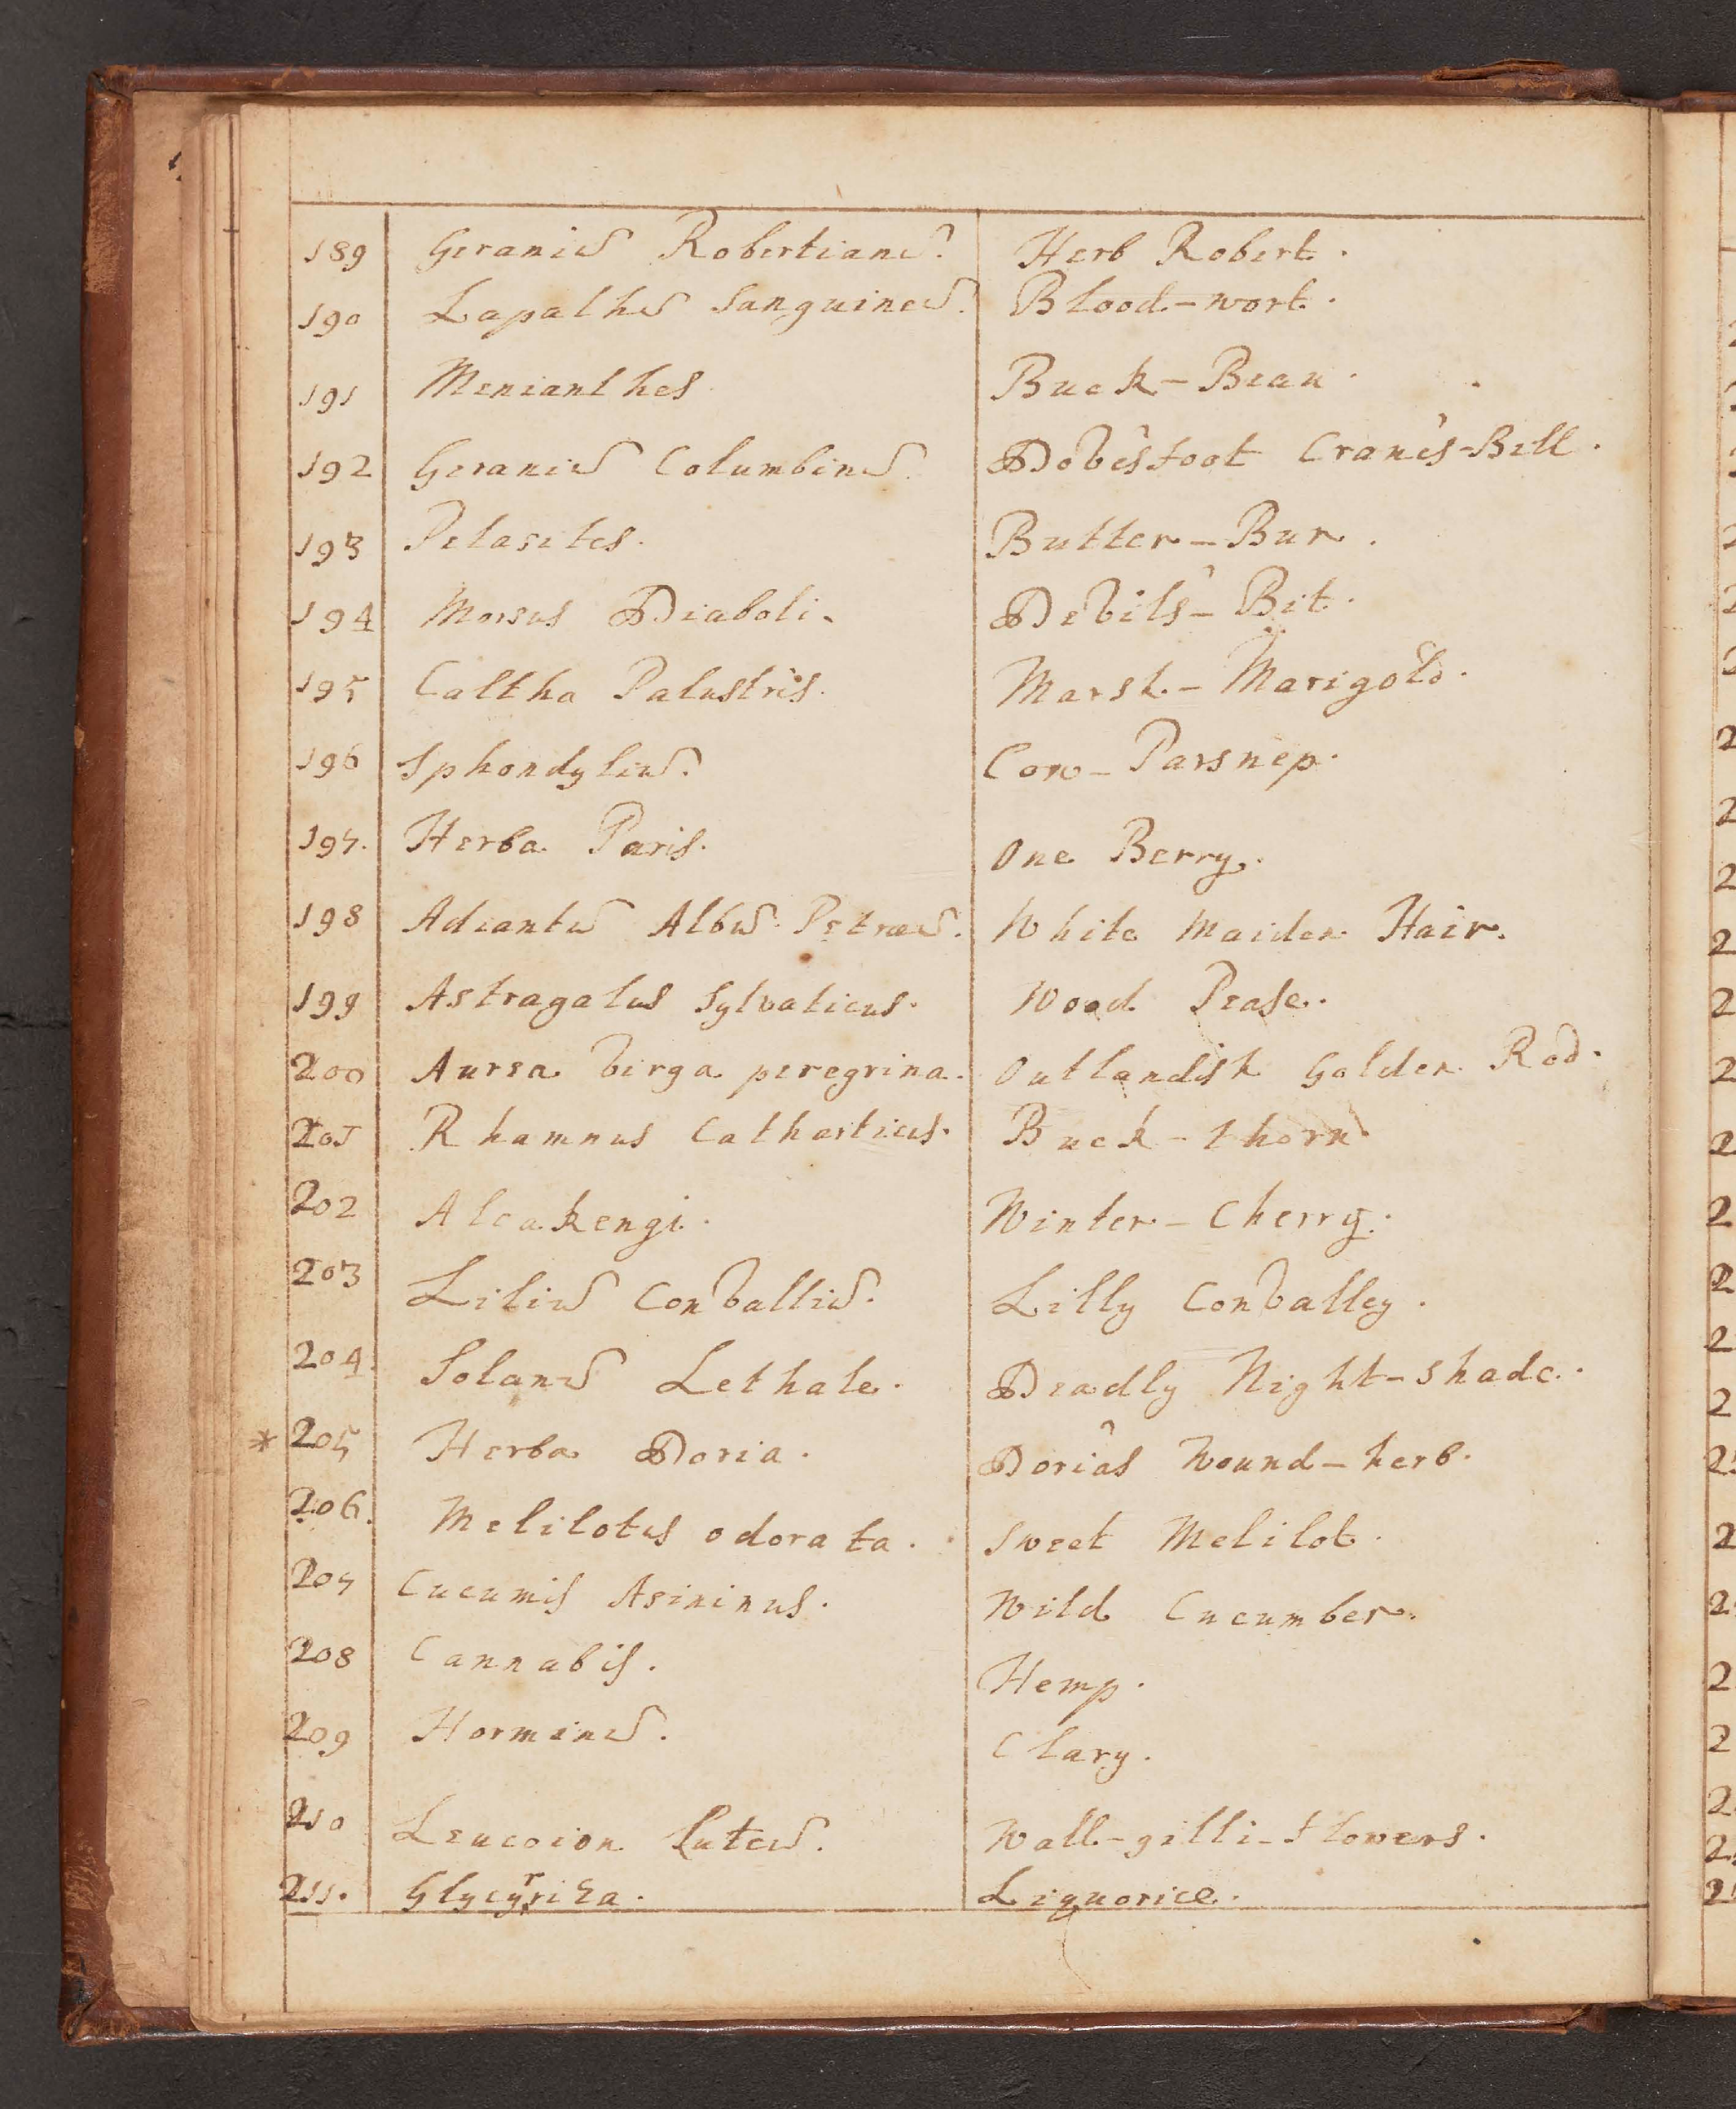 189 Geraniū Robertianū. Herb Robert.
190 Lapathū Sanguineū. Blood-wort.
191 Menianthes Buck-Bean.
192 Geraniū Columbinū. Dove'sfoot Crane's-Bill.
193 Petasites. Butter-Bur.
194 Morsus Diaboli. Devil's-Bit.
195 Caltha Palustris. Marsh-Marigold.
196 Sphondyliū. Cow-Parsnep.
197. Herba Paris. One Berry.
198 Adiantū Albū Petraeū. White Maiden Hair.
199 Astragalus Sylvaticus. Wood Pease.
200 Aurea virga peregrina. Outlandish Golden Rod.
201 Rhamnus Catharticus. Buck-thorn
202 Alcakengi. Winter-Cherry.
203 Liliū Convalliū. Lilly Convalley.
204. Solanū Lethale. Deadly Night-shade.
* 205 Herba Doria. Doria's Wound-herb.
206. Melilotus odorata. Sweet Melilot.
207 Cucumis Asininus. Wild Cucumber.
208 Cannabis. Hemp.
209 Horminū. Clary.
210 Leucoion Luteū. Wall-gilli-flowers.
211. Glycyrriza. Liquorice.